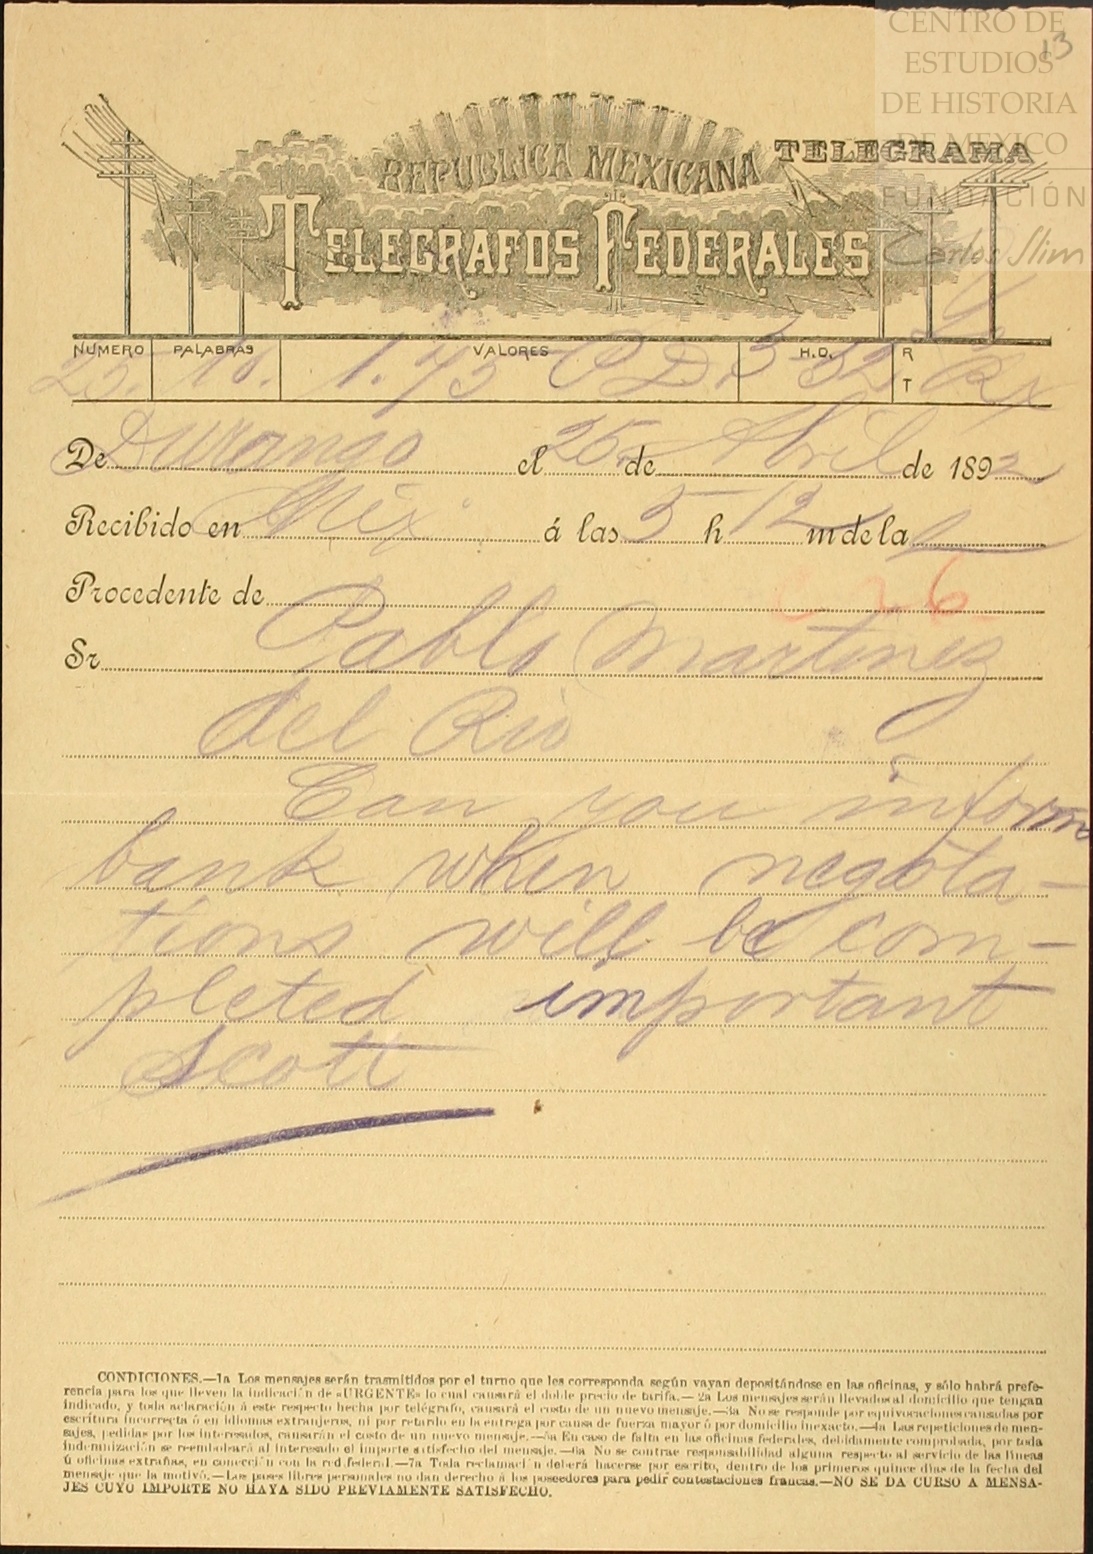 CENTRO DE
ESTUDIOS
DE HISTORIA
DE MEXICO
FUNDACIÓN
Carlos Slim
13
REPUBLICA MEXICANA
TELEGRAMA
TELEGRAFOS FEDERALES
NUMERO PALABRAS VALORES H.D. R T
25. 10. 1.75 O D. 3-32 Rx
De Durango el 25 de Abril de 1892
Recibido en Mex á las 5 h 12 m de la
Procedente de
Sr Pablo Martinez
del Rio
Can you inform
bank when negota-
tions will be com-
pleted important
Scott
CONDICIONES.—1a Los mensajes serán trasmitidos por el turno que les corresponda según vayan depositándose en las oficinas, y sólo habrá prefe-
rencia para los que lleven la indicación de «URGENTE» lo cual causará el doble precio de tarifa.—2a Los mensajes serán llevados al domicilio que tengan
indicado, y toda aclaración á este respecto hecha por telégrafo, causará el costo de un nuevo mensaje.—3a No se responde por equivocaciones causadas por
escritura incorrecta ó en idiomas extranjeros, ni por retardo en la entrega por causa de fuerza mayor ó por domicilio inexacto.—4a Las repeticiones de men-
sajes, pedidas por los interesados, causarán el costo de un nuevo mensaje.—5a En caso de falta en las oficinas federales, debidamente comprobada, por toda
indemnización se reembolsará al interesado el importe satisfecho del mensaje.—6a No se contrae responsabilidad alguna respecto al servicio de las líneas
ú oficinas extrañas, en conección con la red federal.—7a Toda reclamación deberá hacerse por escrito, dentro de los primeros quince días de la fecha del
mensaje que la motivó.—Los pases libres personales no dan derecho á los poseedores para pedir contestaciones francas.—NO SE DA CURSO A MENSA-
JES CUYO IMPORTE NO HAYA SIDO PREVIAMENTE SATISFECHO.